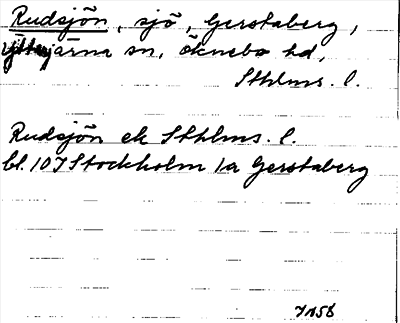 Rudsjön, sjö, Gerstaberg,
Ytterjärna sn, Öknebo hd,
Sthlms. l.
Rudsjön ek Sthlms. l.
bl. 107 Stockholm 1a Gerstaberg